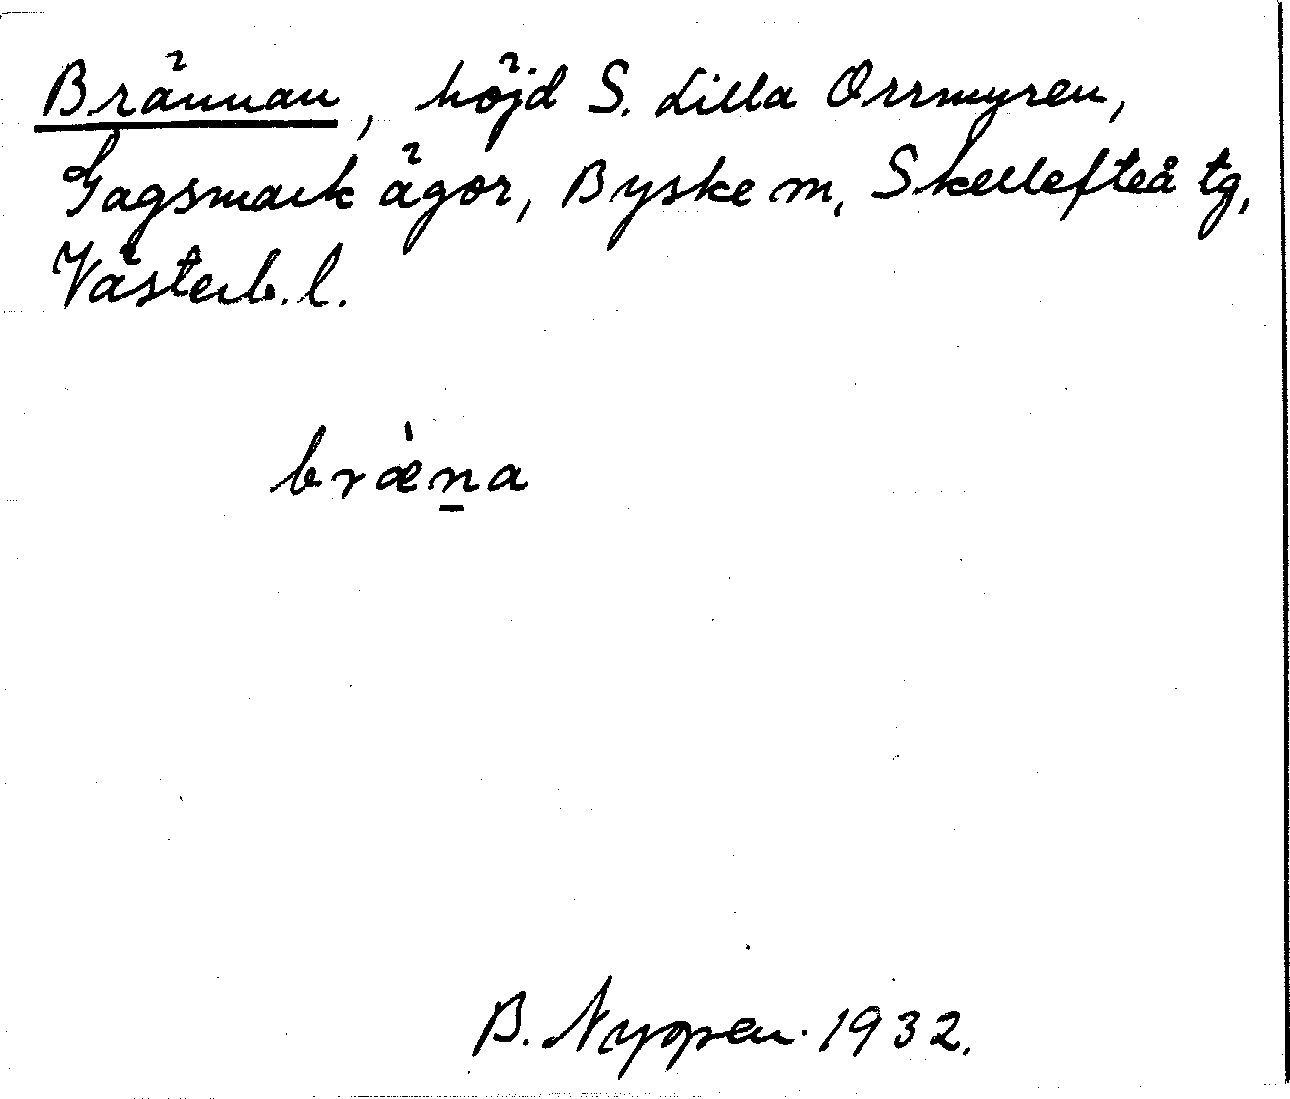 Brännan, höjd S. Lilla Orrmyren,
Gagsmark ägor, Byske m, Skellefteå tg,
Västerb. l.
br&#x27;æṉa
B. Nyopen 1932.